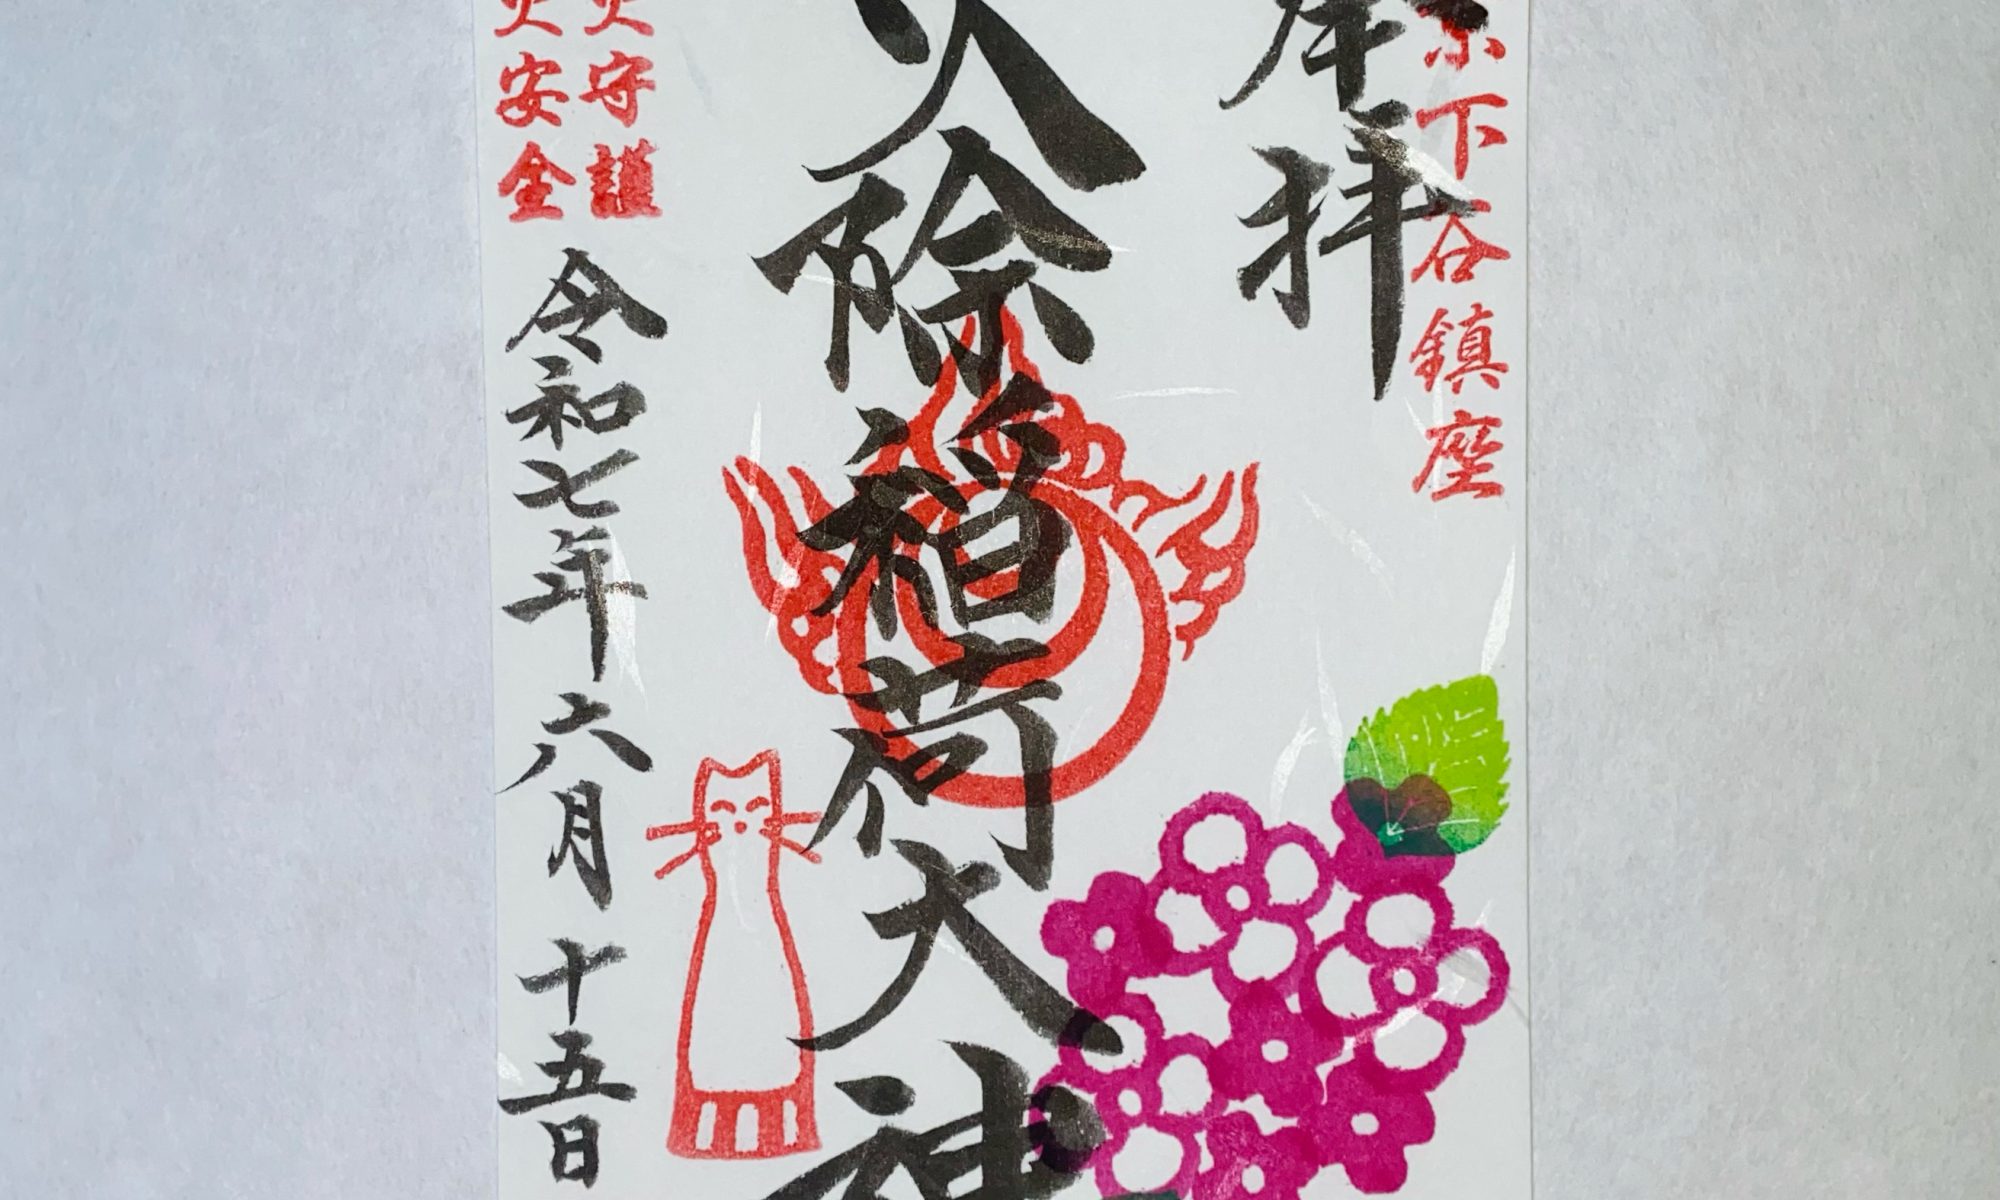 京下谷鎮座
奉拝
火除稲荷大神
守護
安全
令和七年六月十五日